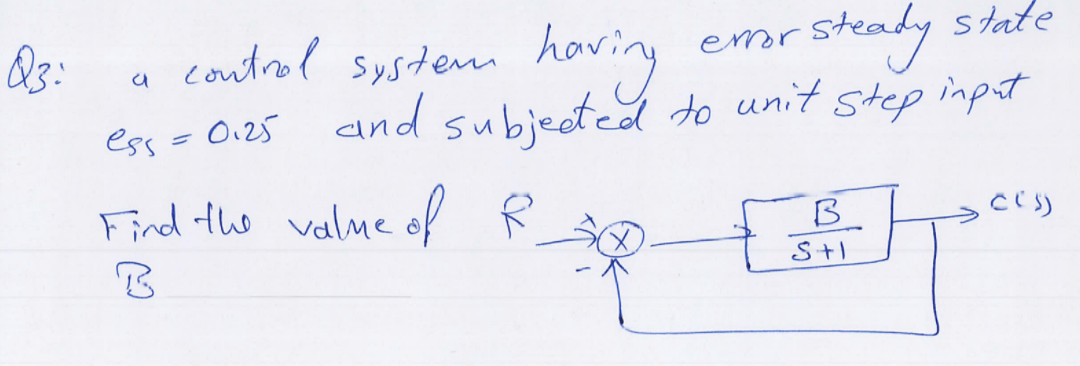 Q3: a control system having error steady state
ess = 0.25 and subjected to unit step input
Find the value of
B
R + X - B/S+1 C(S)